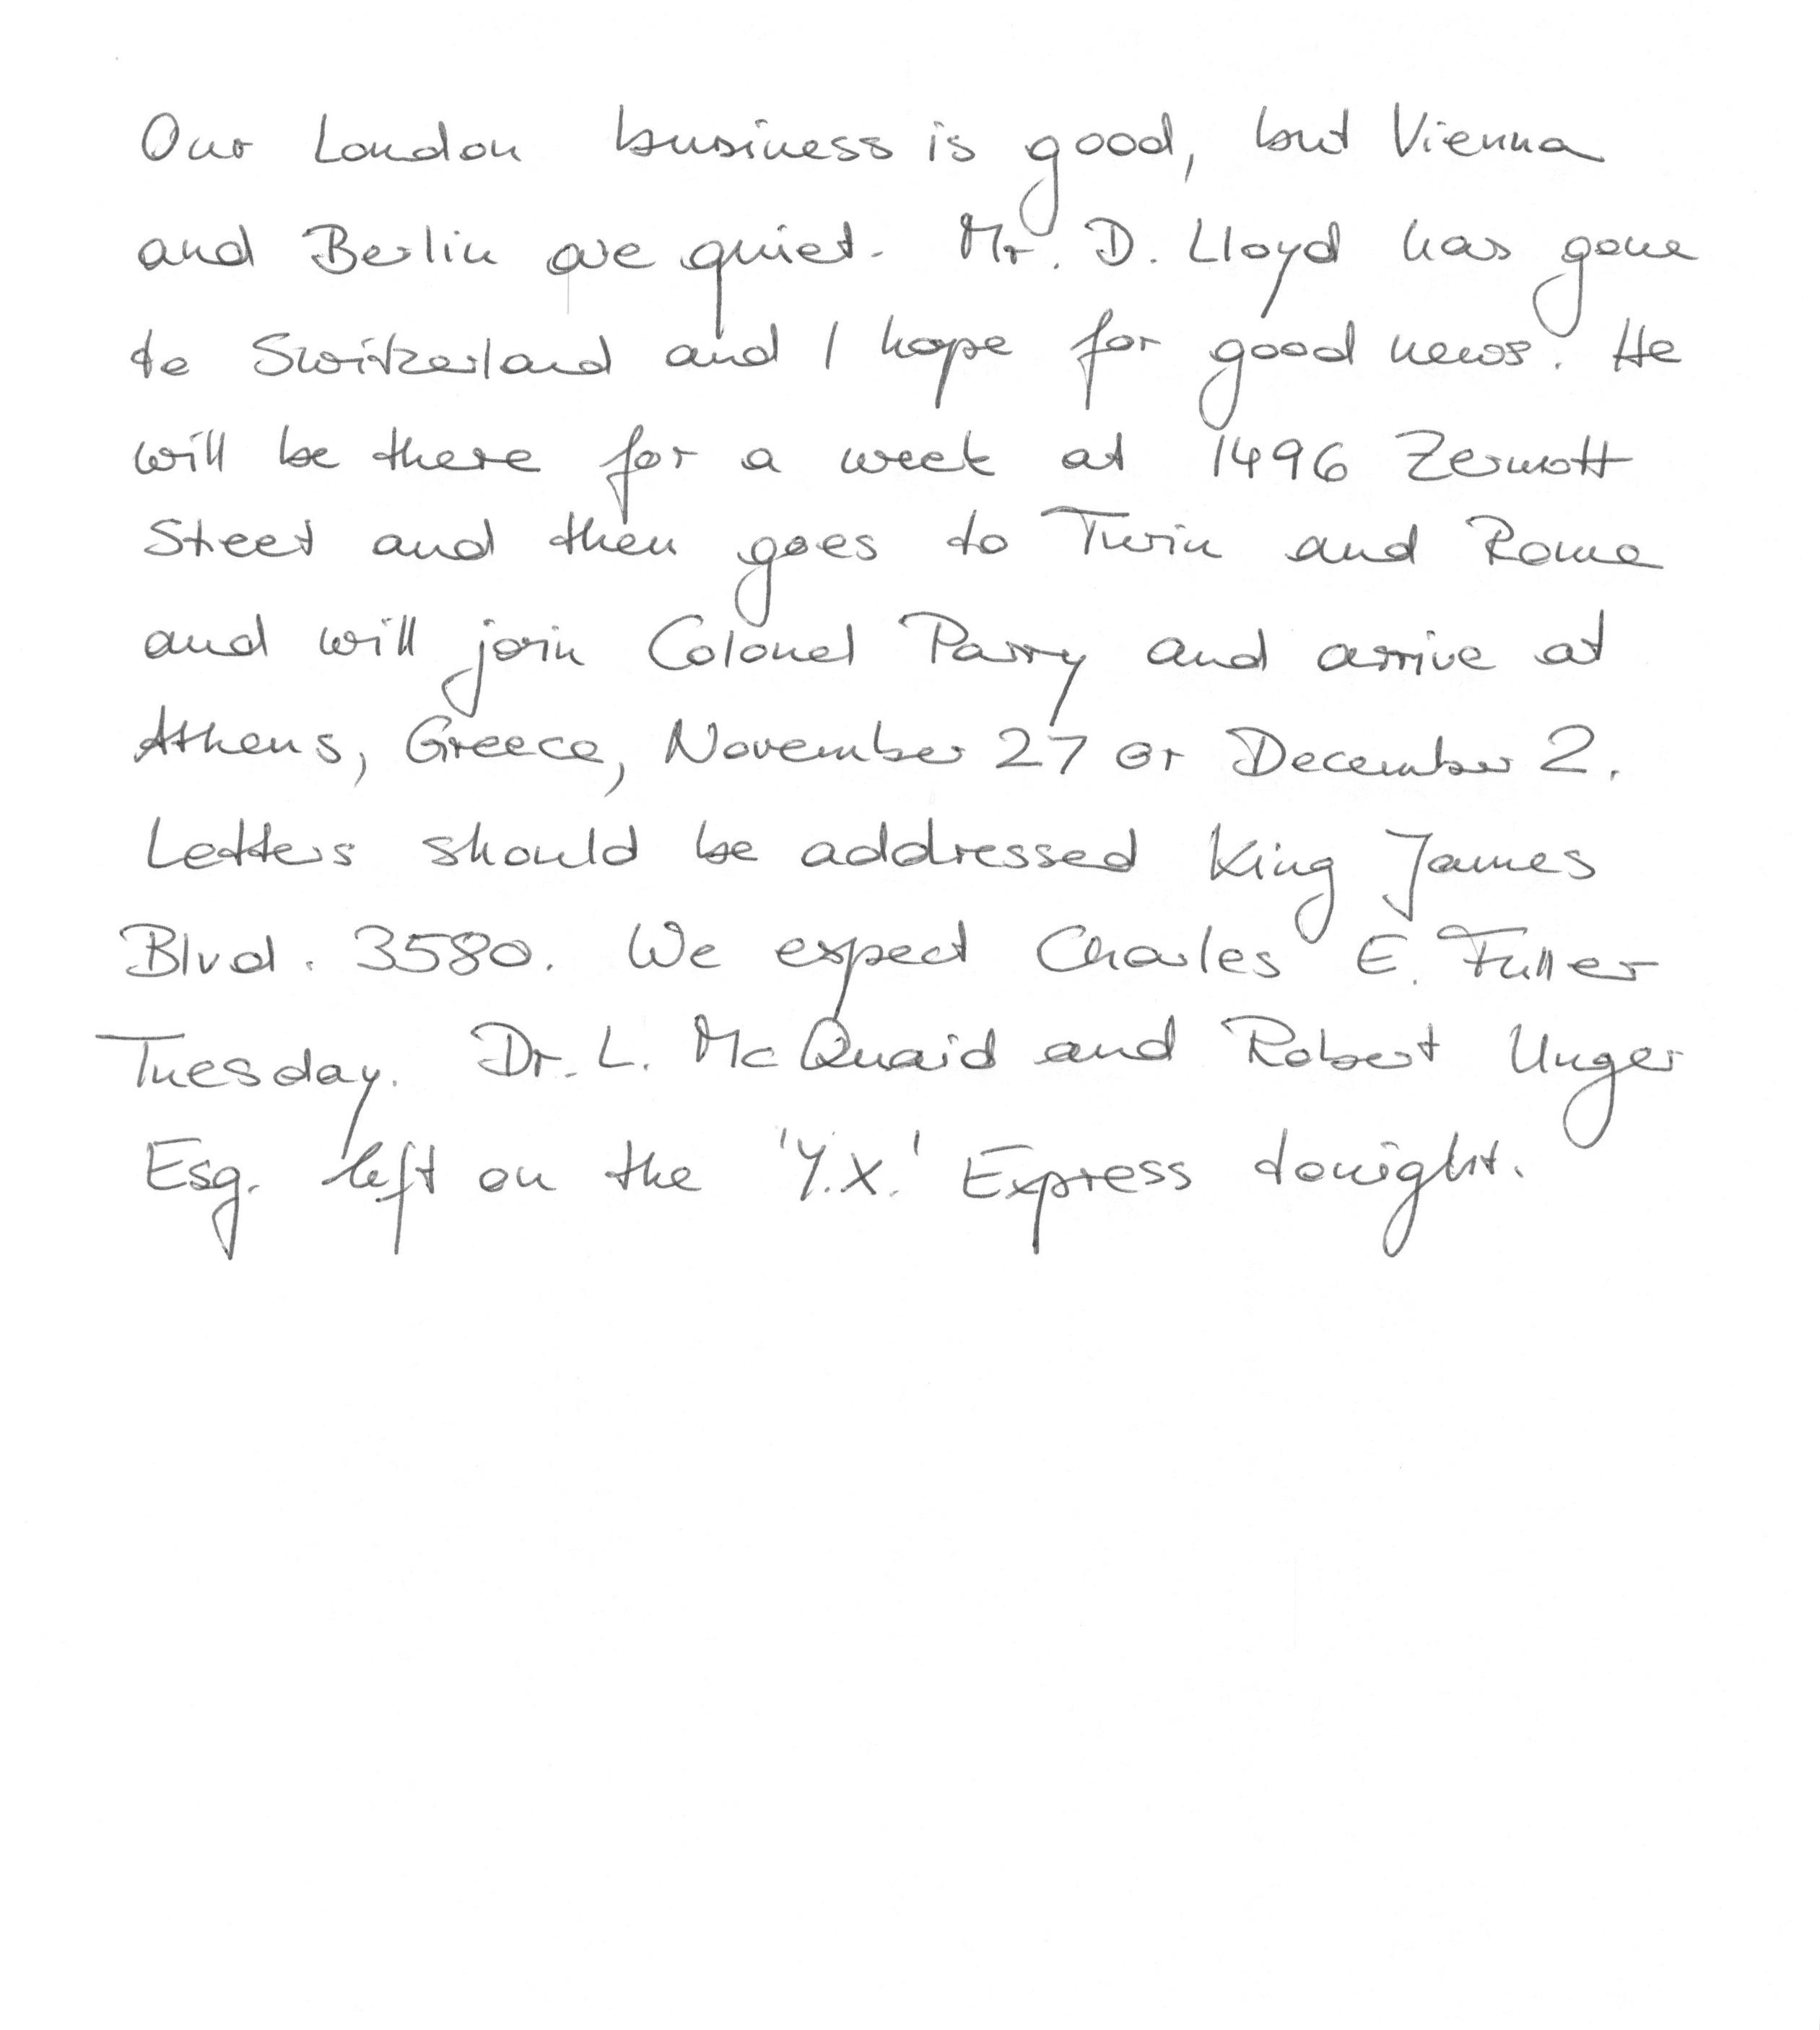 Our London business is good, but Vienna
and Berlin are quiet. Mr. D. Lloyd has gone
to Switzerland and I hope for good news. He
will be there for a week at 1496 Zermott
Street and then goes to Turin and Rome
and will join Colonel Parry and arrive at
Athens, Greece, November 27 or December 2.
Letters should be addressed King James
Blvd. 3580. We expect Charles E. Fuller
Tuesday. Dr. L. McQuaid and Robert Unger
Esq. left on the 'Y.X.' Express tonight.